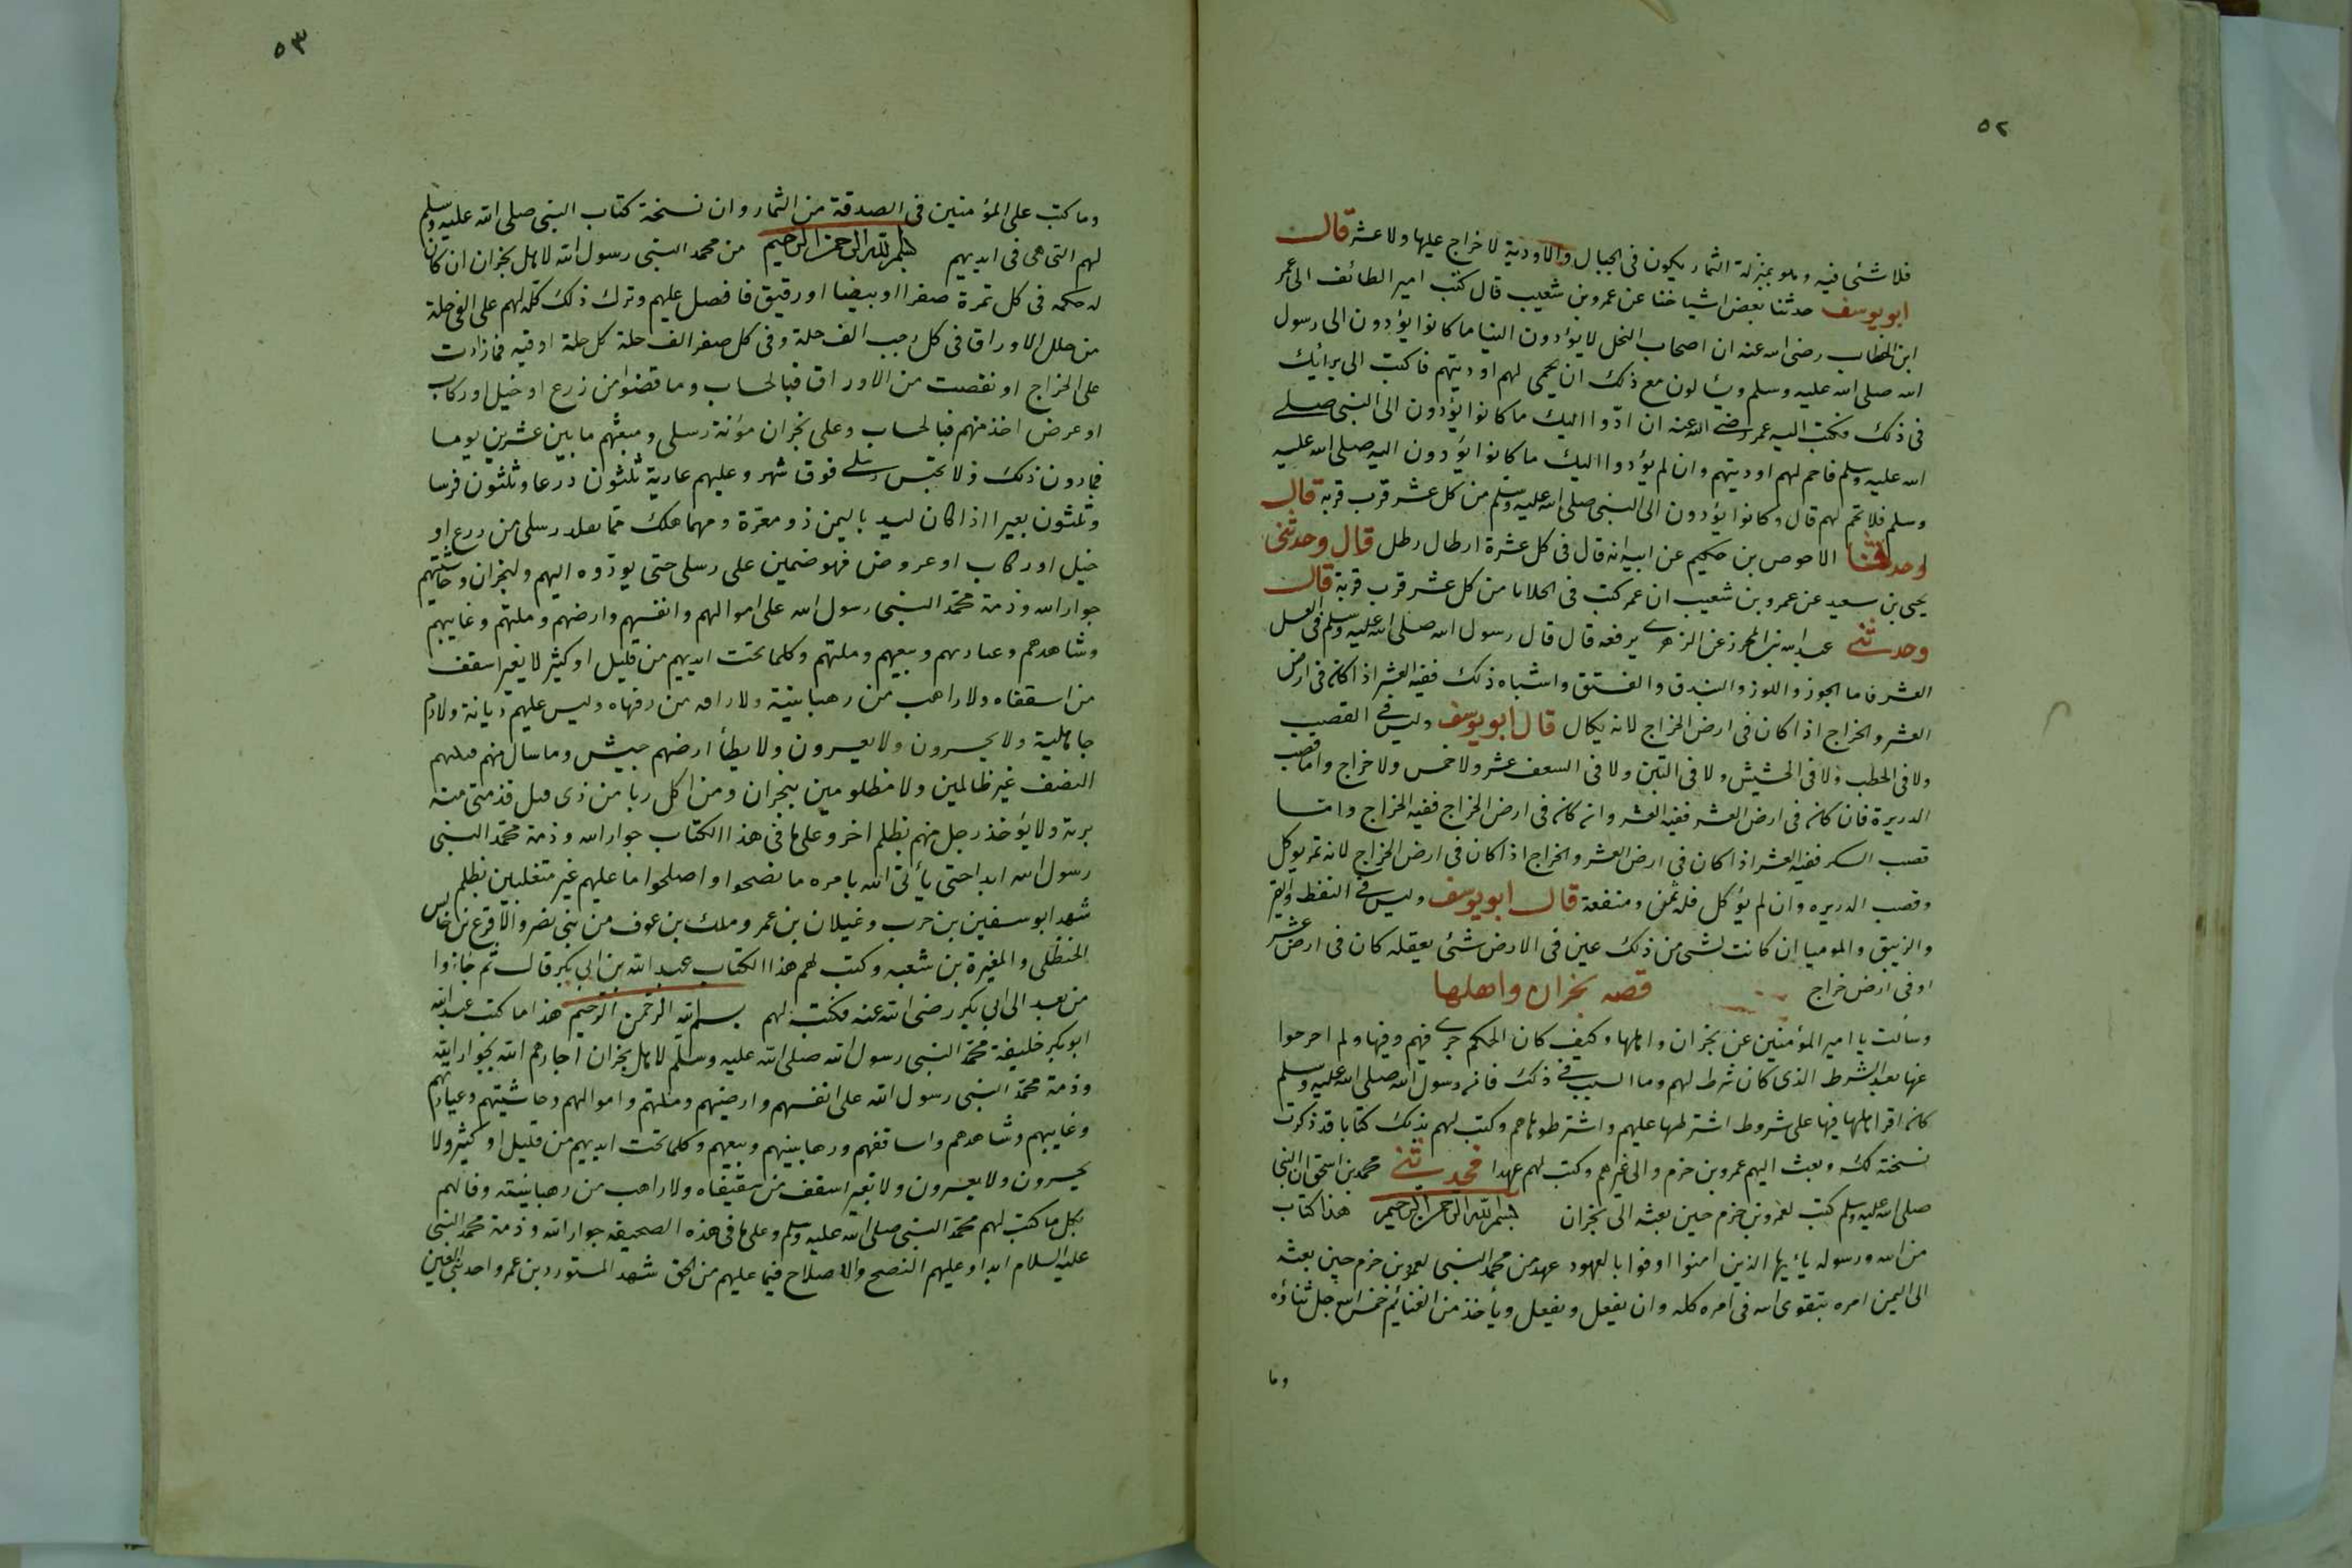 ٥٢
فلا شئ فيه وهو بمنزلة الثمار يكون فى الجبال والاودية لا خراج عليها ولا عشر قال
ابو يوسف حدثنا بعض اشياخنا عن عمرو بن شعيب قال كتب امير الطائف الى عمر
ابن الخطاب رضى الله عنه ان اصحاب النحل لا يؤدون الينا ما كانوا يؤدون الى رسول
الله صلى الله عليه وسلم ويسألون مع ذلك ان يحمى لهم اوديتهم فاكتب الى برائك
فى ذلك فكتب اليه عمر رضى الله عنه ان ادوا اليك ما كانوا يؤدون الى النبى صلى
الله عليه وسلم فاحم لهم اوديتهم وان لم يؤدوا اليك ما كانوا يؤدون اليه صلى الله عليه
وسلم فلا تحم لهم قال وكانوا يؤدون الى النبى صلى الله عليه وسلم من كل عشر قرب قربه قال
وحدثنا الاحوص بن حكيم عن ابيه انه قال فى كل عشرة ارطال رطل قال وحدثنى
يحيى بن سعيد عن عمرو بن شعيب ان عمر كتب فى الخلايا من كل عشر قرب قربة قال
وحدثنى عبد الله بن المحرز عن الزهرى يرفعه قال قال رسول الله صلى الله عليه وسلم فى العسل
العشر فاما الجوز واللوز والبندق والفستق واشباه ذلك ففيه العشر اذا كان فى ارض
العشر والخراج اذا كان فى ارض الخراج لانه يكال قال ابو يوسف وليس فى القصب
ولا فى الحطب ولا فى الحشيش ولا فى التبن ولا فى السعف عشر ولا خمس ولا خراج واما قصب
الدريرة فان كان فى ارض العشر ففيه العشر وان كان فى ارض الخراج ففيه الخراج واما
قصب السكر ففيه العشر اذا كان فى ارض العشر والخراج اذا كان فى ارض الخراج لانه ثمر يوكل
وقصب الدريره وان لم يؤكل فله ثمن ومنفعة قال ابو يوسف وليس فى النفط والقير
والزيبق والموميا ان كانت لشى من ذلك عين فى الارض شئ يعقله كان فى ارض عشر
او فى ارض خراج قصه نجران واهلها
وسألت يا امير المؤمنين عن نجران واهلها وكيف كان الحكم جرى فيهم وفيها ولم اخرجوا
عنها بعد الشرط الذى كان شرط لهم وما السبب فى ذلك فان رسول الله صلى الله عليه وسلم
كان اقر اهلها فيها على شروط اشترطها عليهم واشترطوها هم وكتب لهم بذلك كتابا قد ذكرت
نسخته لك وبعث اليهم عمرو بن حزم والى غيرهم وكتب لهم عهدا فحدثنى محمد بن اسحق ان النبى
صلى الله عليه وسلم كتب لعمرو بن حزم حين بعثه الى نجران بسم الله الرحمن الرحيم هذا كتاب
من الله ورسوله يا ايها الذين امنوا اوفوا بالعهود عهد من محمد النبى لعمرو بن حزم حين بعثه
الى اليمن امره بتقوى الله فى امره كله وان يفعل ويفعل ويأخذ من الغنائم خمس الله جل ثناؤه
وما
٥٣
وما كتب على المؤمنين فى الصدقة من الثمار وان نسخة كتاب النبى صلى الله عليه وسلم
لهم التى هى فى ايديهم بسم الله الرحمن الرحيم من محمد النبى رسول الله لاهل نجران ان كان
له حكمه فى كل تمرة صفرا او بيضا او رقيق فافضل عليهم وترك ذلك كله لهم على الفى حلة
من حلل الاوراق فى كل رجب الف حلة وفى كل صفر الف حلة كل حلة اوقيه فما زادت
على الخراج او نقصت من الاوراق فبالحساب وما قضوا من زرع او خيل او ركاب
او عرض اخذ منهم فبالحساب وعلى نجران مؤنة رسلى ومتعتهم ما بين عشرين يوما
فمادون ذلك ولا تحبس رسلى فوق شهر وعليهم عارية ثلثون درعا وثلثون فرسا
وثلثون بعيرا اذا كان كيد باليمن ذو معرة ومهما هلك مما رسلى من درع او
خيل او ركاب او عروض فهو ضمين على رسلى حتى يودوه اليهم ولنجران وحاشيتهم
جوار الله وذمة محمد النبى رسول الله على اموالهم وانفسهم وارضهم وملتهم وغايبهم
وشاهدهم وعبادتهم وبيعهم وملتهم وكلما تحت ايديهم من قليل او كثير لا يغير اسقف
من اسقفاه ولا راهب من رهبانيته ولا من وليس عليهم ديانة ولا دم
جاهلية ولا يخسرون ولا يعسرون ولا يطأ ارضهم جيش وما سال منهم
النصف غير ظالمين ولا مظلومين بنجران ومن اكل ربا من ذى قبل فذمتى منه
برية ولا يؤخذ رجل منهم بظلم اخر وعلى ما فى هذا الكتاب جوار الله وذمة محمد النبى
رسول الله ابدا حتى يأتى الله بامره ما نصحوا واصلحوا ما عليهم غير متغلبين بظلم
شهد ابو سفين بن حرب وغيلان بن عمر وملك بن عوف من بنى نصر والاقرع بن حابس
الحنظلى والمغيرة بن شعبه وكتب لهم هذا الكتاب عبد الله بن ابى بكر قال ثم جاؤا
من بعد الى ابى بكر رضى الله عنه فكتب لهم بسم الله الرحمن الرحيم هذا ما كتب عبد الله
ابو بكر خليفة محمد النبى رسول الله صلى الله عليه وسلم لاهل نجران اجارهم الله بجوار الله
وذمة محمد النبى رسول الله على انفسهم وارضيهم وملتهم واموالهم وحاشيتهم وعبادتهم
وغايبهم وشاهدهم واساقفهم ورهابنيهم وبيعهم وكلما تحت ايديهم من قليل او كثير ولا
يخسرون ولا يعسرون ولا يغير اسقف من سقيفاه ولا راهب من رهبانيته وفا لهم
بكل ما كتب لهم محمد النبى صلى الله عليه وسلم وعلى ما فى هذه الصحيفه جوار الله وذمة محمد النبى
عليه السلام ابدا وعليهم النصح والاصلاح فيما عليهم من الحق شهد المستورد بن عمرو احد بنى القين